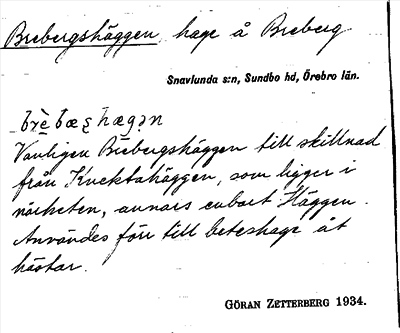 Brebergshäggen, hage å Breberg
Snavlunda s:n, Sundbo hd, Örebro län.
Vanligen Brebergshäggen till skillnad
från Knektahäggen, som ligger i
närheten, annars enbart Häggen.
Användes förr till beteshage åt
hästar.
GÖRAN ZETTERBERG 1934.